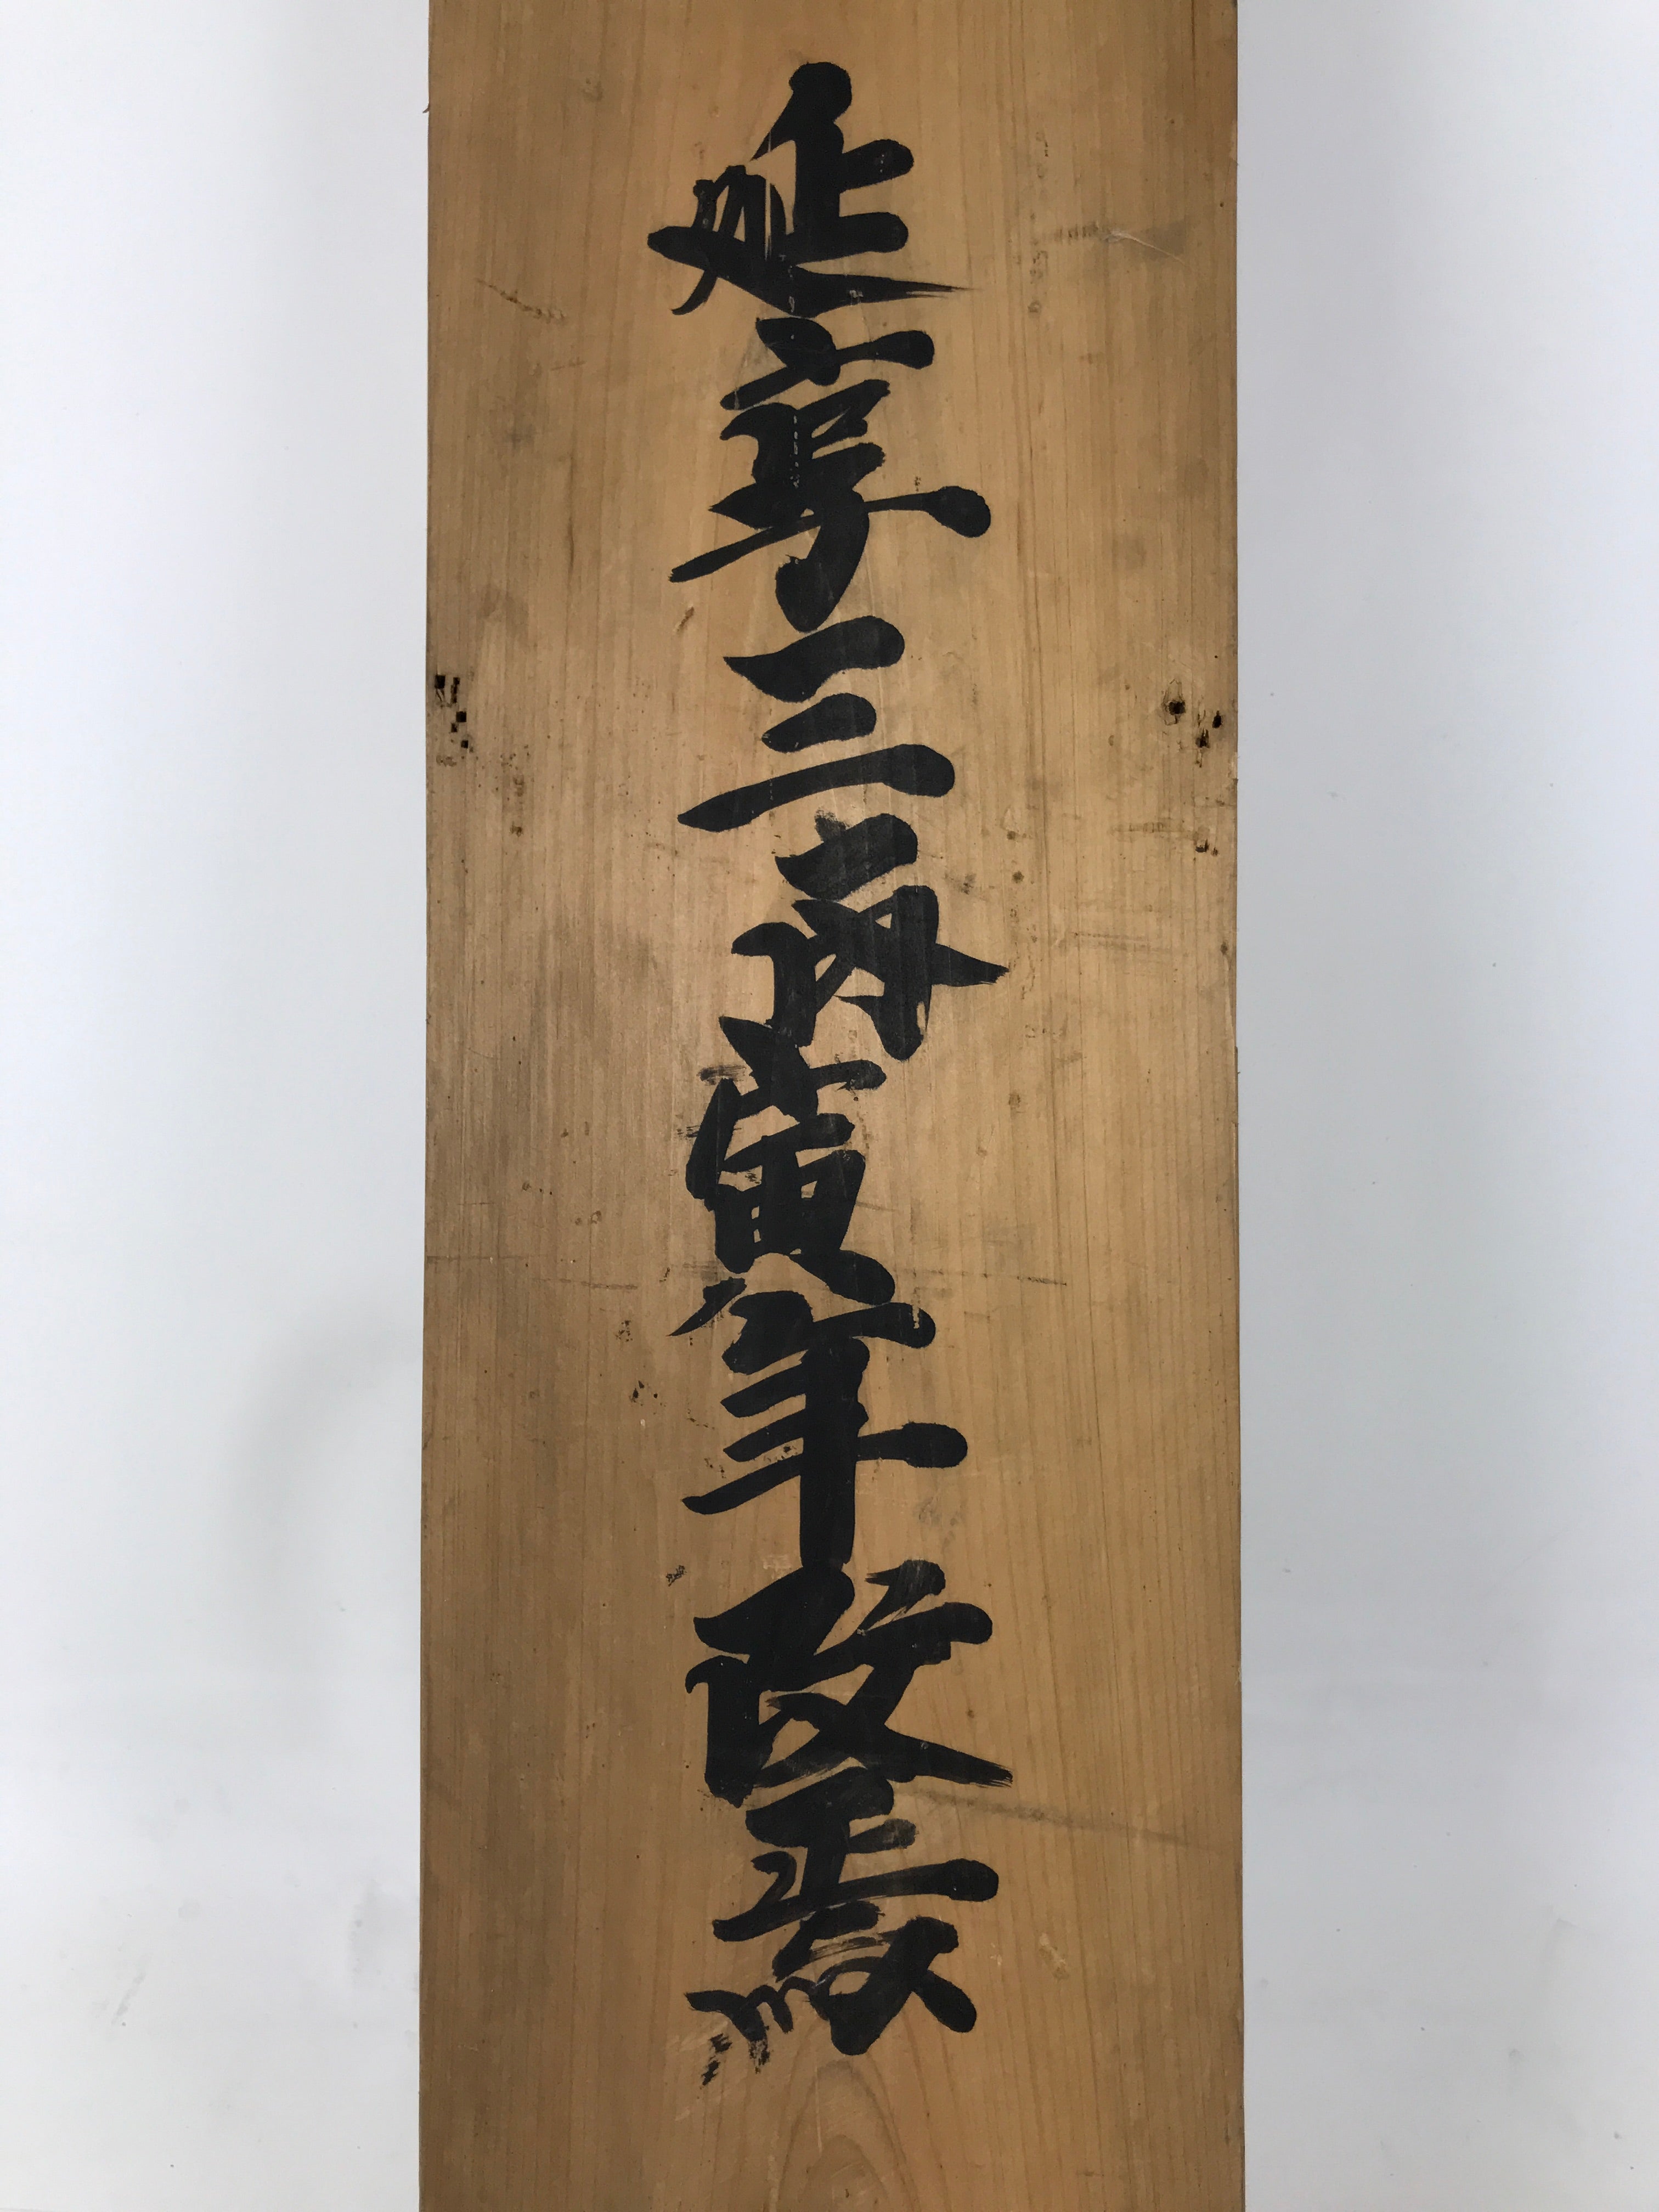 延享三丙寅年改正焉